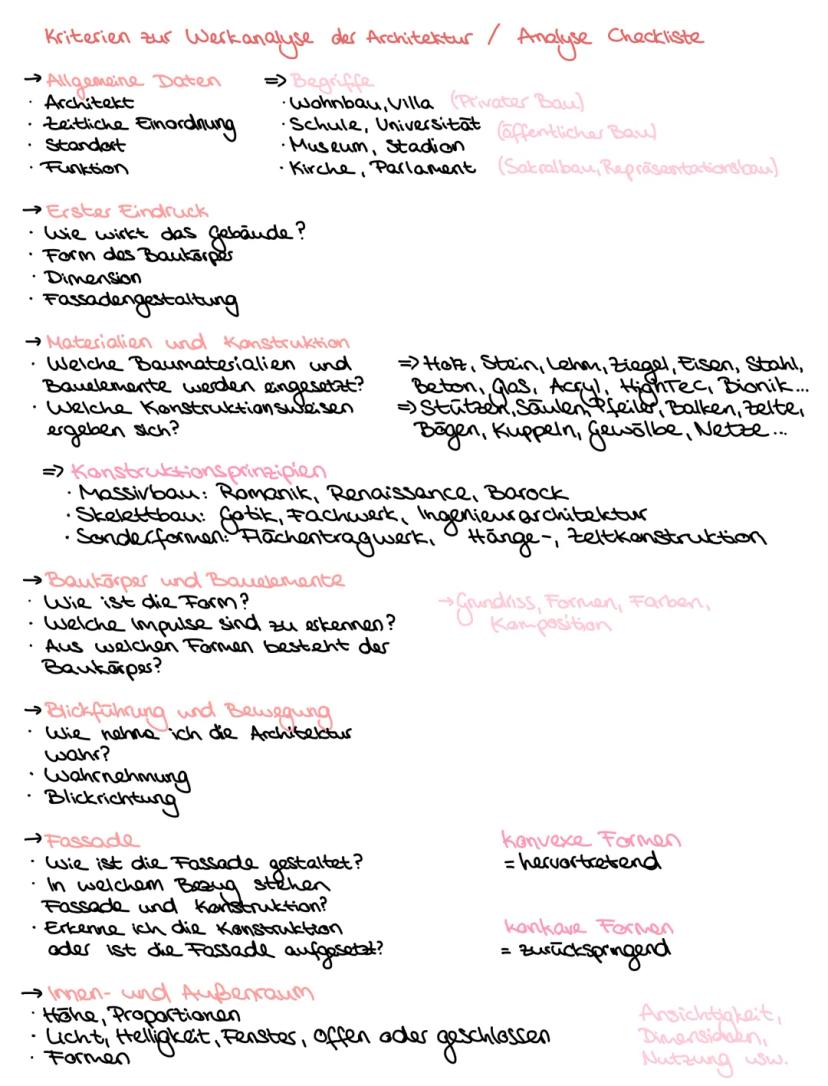 Kriterien zur Werkanalyse der Architektur / Analyse Checkliste
→ Allgemeine Daten
· Architekt
· Zeitliche Einordnung
· Standort
· Funktion
=> Begriffe
· Wohnbau, Villa (Privater Bau)
· Schule, Universität (öffentlicher Bau)
· Museum, Stadion
· Kirche, Parlament (Sakralbau, Repräsentationsbau)
→ Erster Eindruck
· Wie wirkt das Gebäude?
· Form des Baukörper
· Dimension
· Fassadengestaltung
→ Materialien und Konstruktion
· Welche Baumaterialien und
Bauelemente werden eingesetzt?
· Welche Konstruktionsweisen
ergeben sich?
=> Holz, Stein, Lehm, Ziegel, Eisen, Stahl,
Beton, Glas, Acryl, HighTec, Bionik...
=> Stützen, Säulen, Pfeiler, Balken, Zelte,
Bögen, Kuppeln, Gewölbe, Netze...
=> Konstruktionsprinzipien
· Massivbau: Romanik, Renaissance, Barock
· Skelettbau: Gotik, Fachwerk, Ingenieurarchitektur
· Sonderformen: Flächentragwerk, Hänge-, Zeltkonstruktion
→ Baukörper und Bauelemente
· Wie ist die Form?
· Welche Impulse sind zu erkennen?
· Aus welchen Formen besteht der
Baukörper?
→ Grundriss, Formen, Farben,
Komposition
→ Blickführung und Bewegung
· Wie nehme ich die Architektur
wahr?
· Wahrnehmung
· Blickrichtung
→ Fassade
· Wie ist die Fassade gestaltet?
· In welchem Bezug stehen
Fassade und Konstruktion?
· Erkenne ich die Konstruktion
oder ist die Fassade aufgesetzt?
konvexe Formen
= hervortretend
konkave Formen
= zurückspringend
→ Innen- und Außenraum
· Höhe, Proportionen
· Licht, Helligkeit, Fenster, offen oder geschlossen
· Formen
Ansichtigkeit,
Dimensionen,
Nutzung usw.